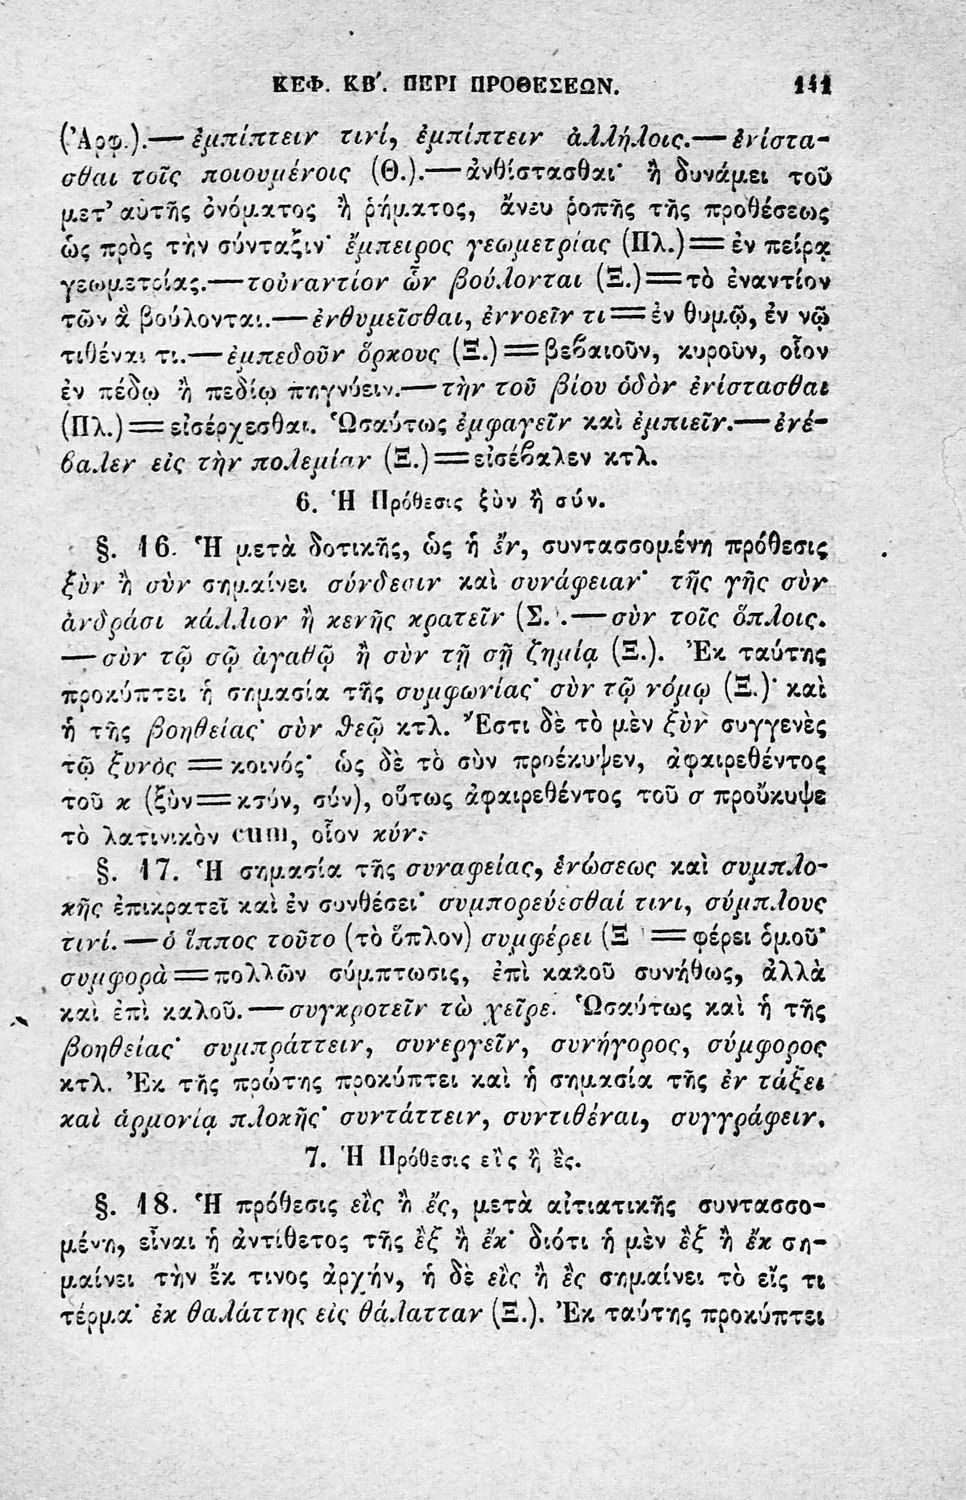 ΚΕΦ. ΚΒ΄. ΠΕΡΙ ΠΡΟΘΕΣΕΩΝ. 141
(Ἀρφ.).— ἐμπίπτειν τινί, ἐμπίπτειν ἀλλήλοις.— ἐνίστα-
σθαι τοῖς ποιουμένοις (Θ.).— ἀνθίστασθαι· ἢ δυνάμει τοῦ
μετ' αὐτῆς ὀνόματος ἢ ῥήματος, ἄνευ ῥοπῆς τῆς προθέσεως
ὡς πρὸς τὴν σύνταξιν· ἔμπειρος γεωμετρίας (Πλ.)= ἐν πείρᾳ
γεωμετρίας.— τοὐναντίον ὧν βούλονται (Ξ.)= τὸ ἐναντίον
τῶν ἃ βούλονται.— ἐνθυμεῖσθαι, ἐννοεῖν τι= ἐν θυμῷ, ἐν νῷ
τιθέναι τι.— ἐμπεδοῦν ὅρκους (Ξ.)= βεβαιοῦν, κυροῦν, οἷον
ἐν πέδῳ ἢ πεδίῳ πηγνύειν.— τὴν τοῦ βίου ὁδὸν ἐνίστασθαι
(Πλ.)= εἰσέρχεσθαι. Ὡσαύτως ἐμφαγεῖν καὶ ἐμπιεῖν.— ἐνέ-
βαλεν εἰς τὴν πολεμίαν (Ξ.)= εἰσέβαλεν κτλ.
6. Ἡ Πρόθεσις ξὺν ἢ σύν.
§. 16. Ἡ μετὰ δοτικῆς, ὡς ἡ ἔν, συντασσομένη πρόθεσις
ξὺν ἢ σὺν σημαίνει σύνδεσιν καὶ συνάφειαν· τῆς γῆς σὺν
ἀνδράσι κάλλιον ἢ κενῆς κρατεῖν (Σ.).— σὺν τοῖς ὅπλοις.
— σὺν τῷ σῷ ἀγαθῷ ἢ σὺν τῇ σῇ ζημίᾳ (Ξ.). Ἐκ ταύτης
προκύπτει ἡ σημασία τῆς συμφωνίας· σὺν τῷ νόμῳ (Ξ.)· καὶ
ἡ τῆς βοηθείας· σὺν θεῷ κτλ. Ἔστι δὲ τὸ μὲν ξὺν συγγενὲς
τῷ ξυνὸς = κοινός· ὡς δὲ τὸ σὺν προέκυψεν, ἀφαιρεθέντος
τοῦ κ (ξὺν= κσύν, σύν), οὕτως ἀφαιρεθέντος τοῦ σ προὔκυψε
τὸ λατινικὸν cum, οἷον κύν.
§. 17. Ἡ σημασία τῆς συναφείας, ἑνώσεως καὶ συμπλο-
κῆς ἐπικρατεῖ καὶ ἐν συνθέσει· συμπορεύεσθαί τινι, σύμπλους
τινί.— ὁ ἵππος τοῦτο (τὸ ὅπλον) συμφέρει (Ξ = φέρει ὁμοῦ·
συμφορὰ= πολλῶν σύμπτωσις, ἐπὶ κακοῦ συνήθως, ἀλλὰ
καὶ ἐπὶ καλοῦ.— συγκροτεῖν τὼ χεῖρε. Ὡσαύτως καὶ ἡ τῆς
βοηθείας· συμπράττειν, συνεργεῖν, συνήγορος, σύμφορος
κτλ. Ἐκ τῆς πρώτης προκύπτει καὶ ἡ σημασία τῆς ἐν τάξει
καὶ ἁρμονίᾳ πλοκῆς· συντάττειν, συντιθέναι, συγγράφειν.
7. Ἡ Πρόθεσις εἲς ἢ ἒς.
§. 18. Ἡ πρόθεσις εἲς ἢ ἔς, μετὰ αἰτιατικῆς συντασσο-
μένη, εἶναι ἡ ἀντίθετος τῆς ἒξ ἢ ἔκ· διότι ἡ μὲν ἒξ ἢ ἔκ ση-
μαίνει τὴν ἔκ τινος ἀρχήν, ἡ δὲ εἲς ἢ ἒς σημαίνει τὸ εἴς τι
τέρμα· ἐκ θαλάττης εἰς θάλατταν (Ξ.). Ἐκ ταύτης προκύπτει